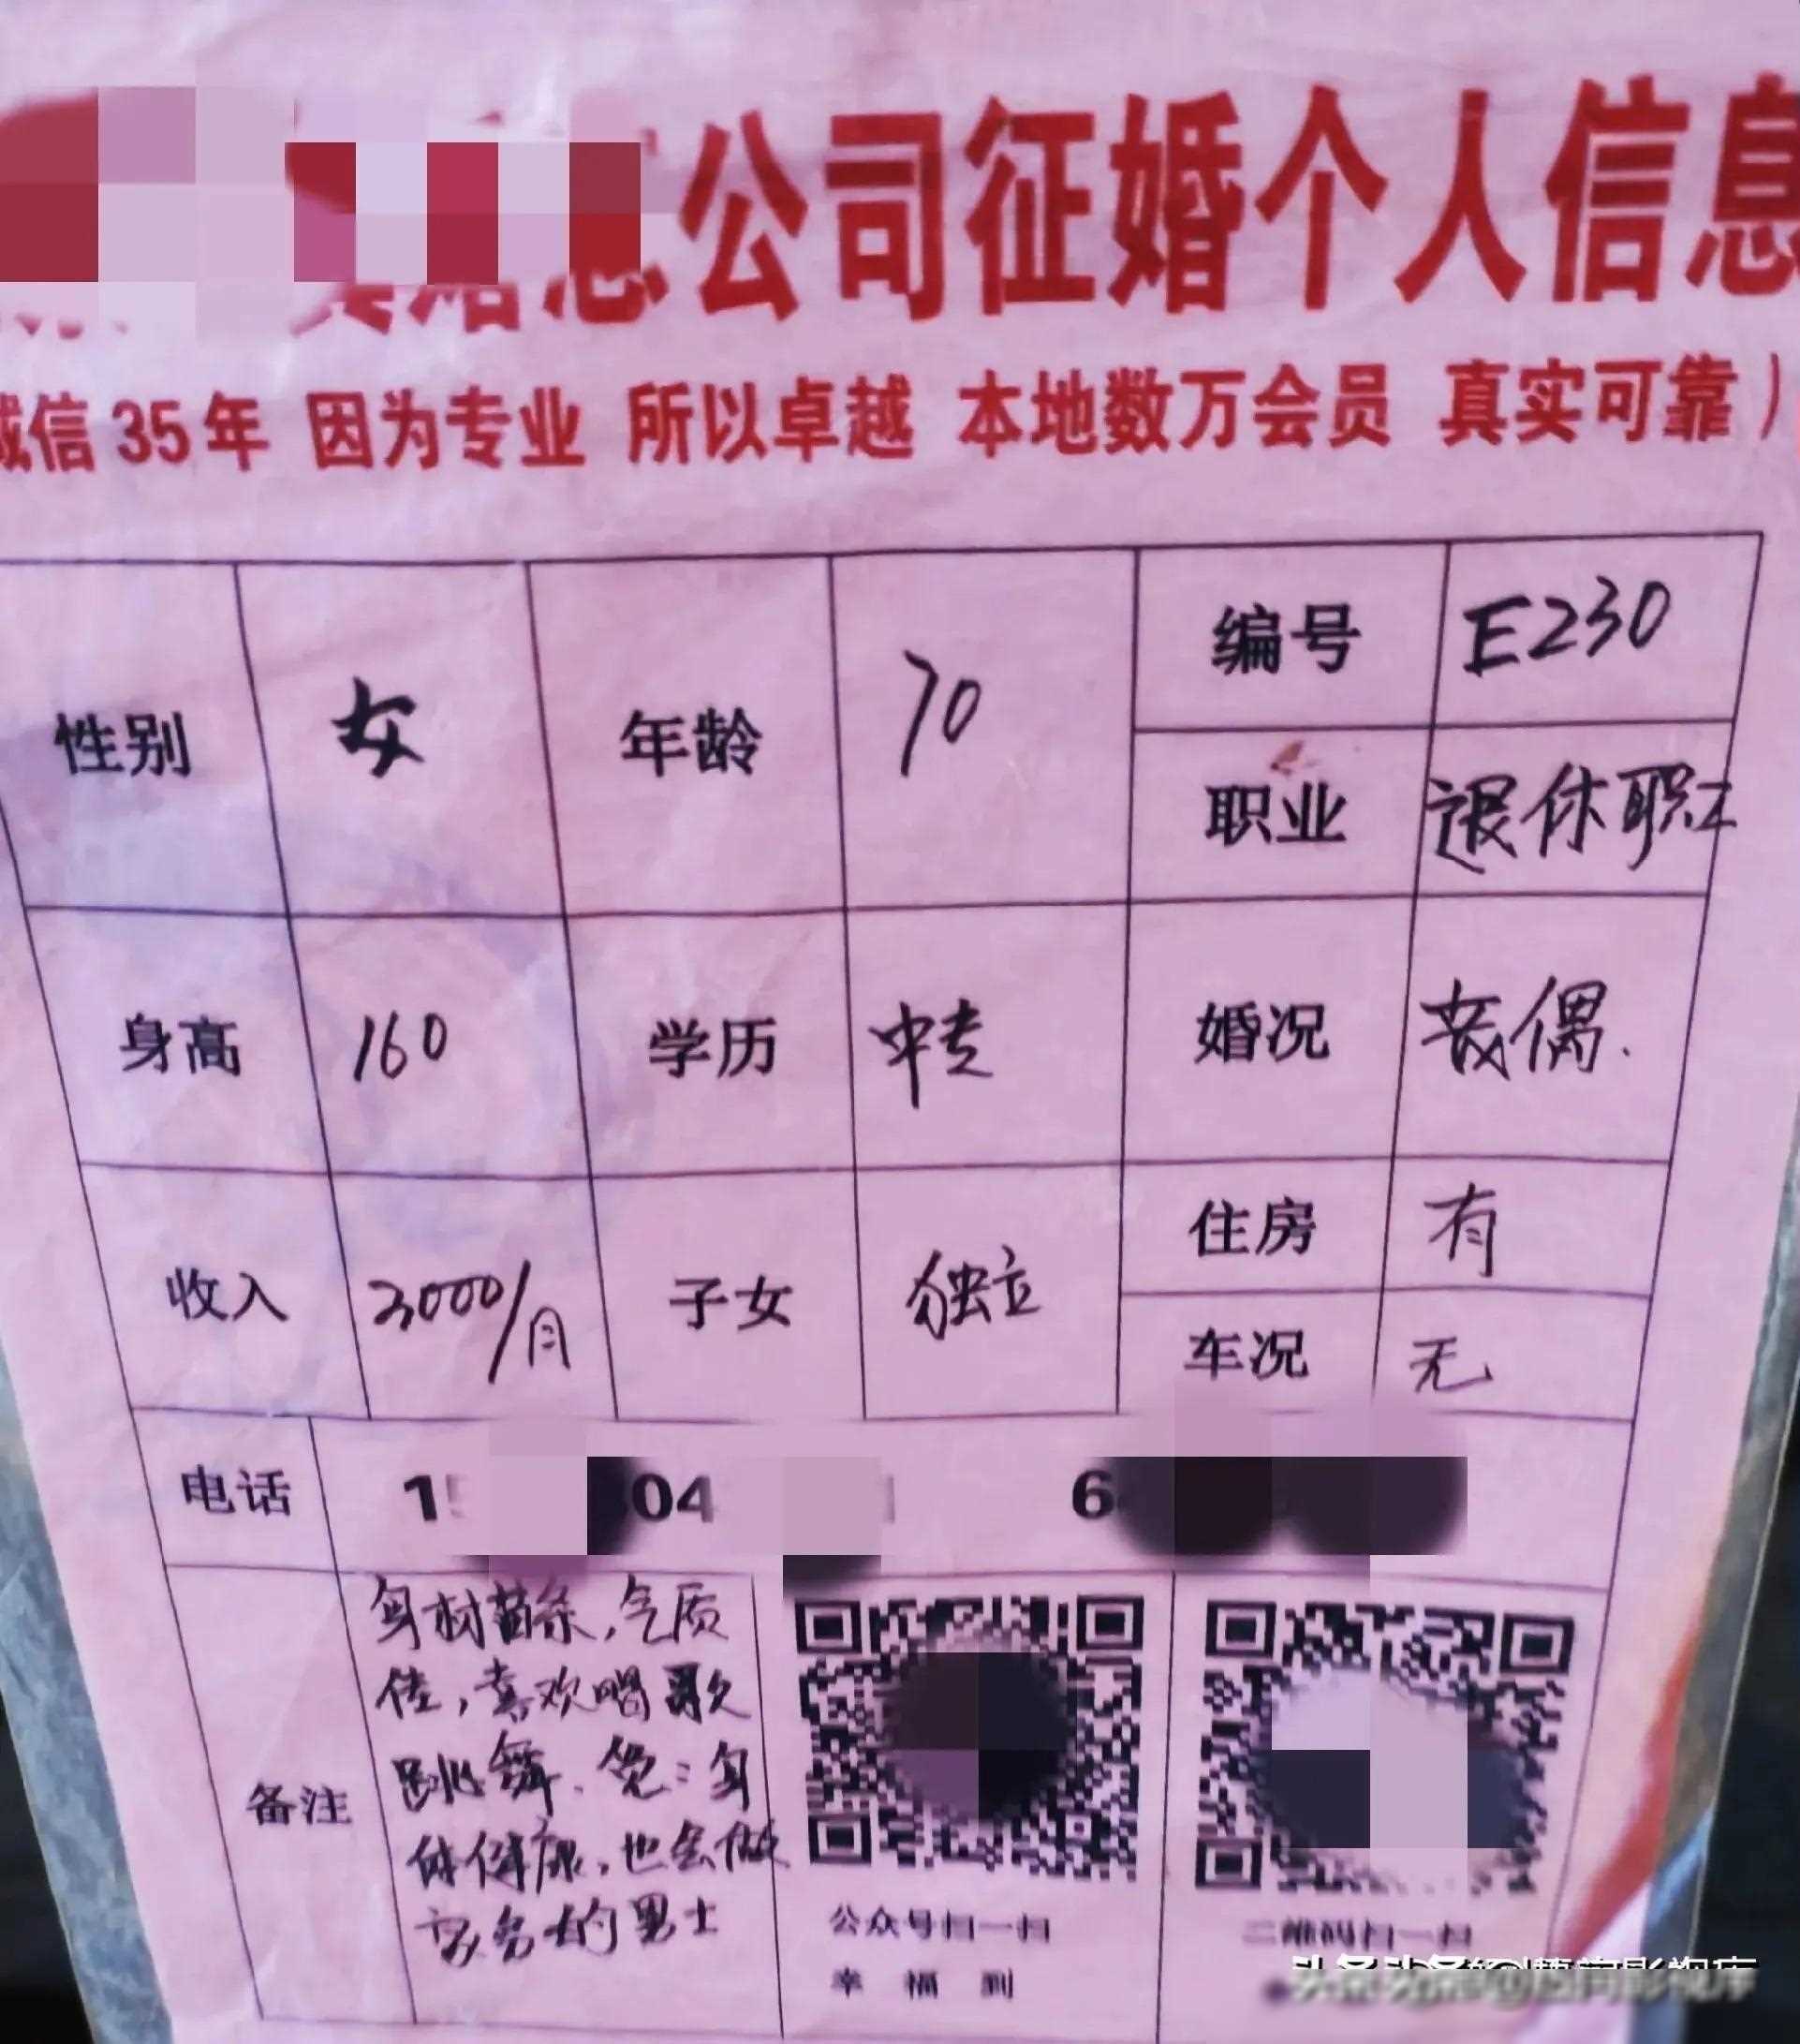 公司征婚个人信息
诚信35年 因为专业 所以卓越 本地数万会员 真实可靠)
性别 女 年龄 70 编号 E230
职业 退休职工
身高 160 学历 中专 婚况 丧偶.
收入 3000/月 子女 独立 住房 有
车况 无
电话 1 04 6
备注
身材苗条,气质
佳,喜欢唱歌
跳舞.觅:身
体健康,也会做
家务的男士
公众号扫一扫
幸福到
二维码扫一扫